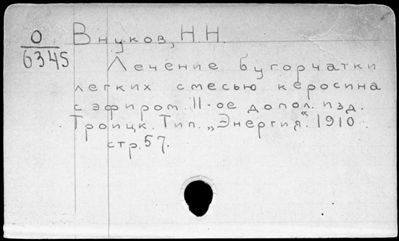 О
6345
Внуков, Н.Н.
Лечение бугорчатки
легких смесью керосина
с эфиром. 11-ое допол. изд.
Троицк. Тип. „Энергия“. 1910
стр. 57.